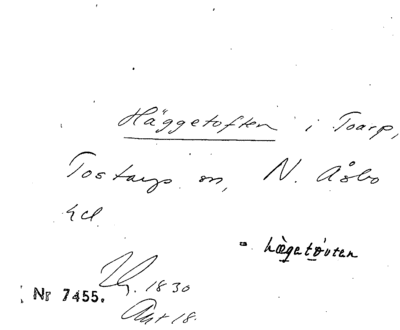 Häggetoften i Toarp,
Tostarps sn, N. Åsbo
hd
hägetòuten
Nr 7455.
1830
Akt 18.